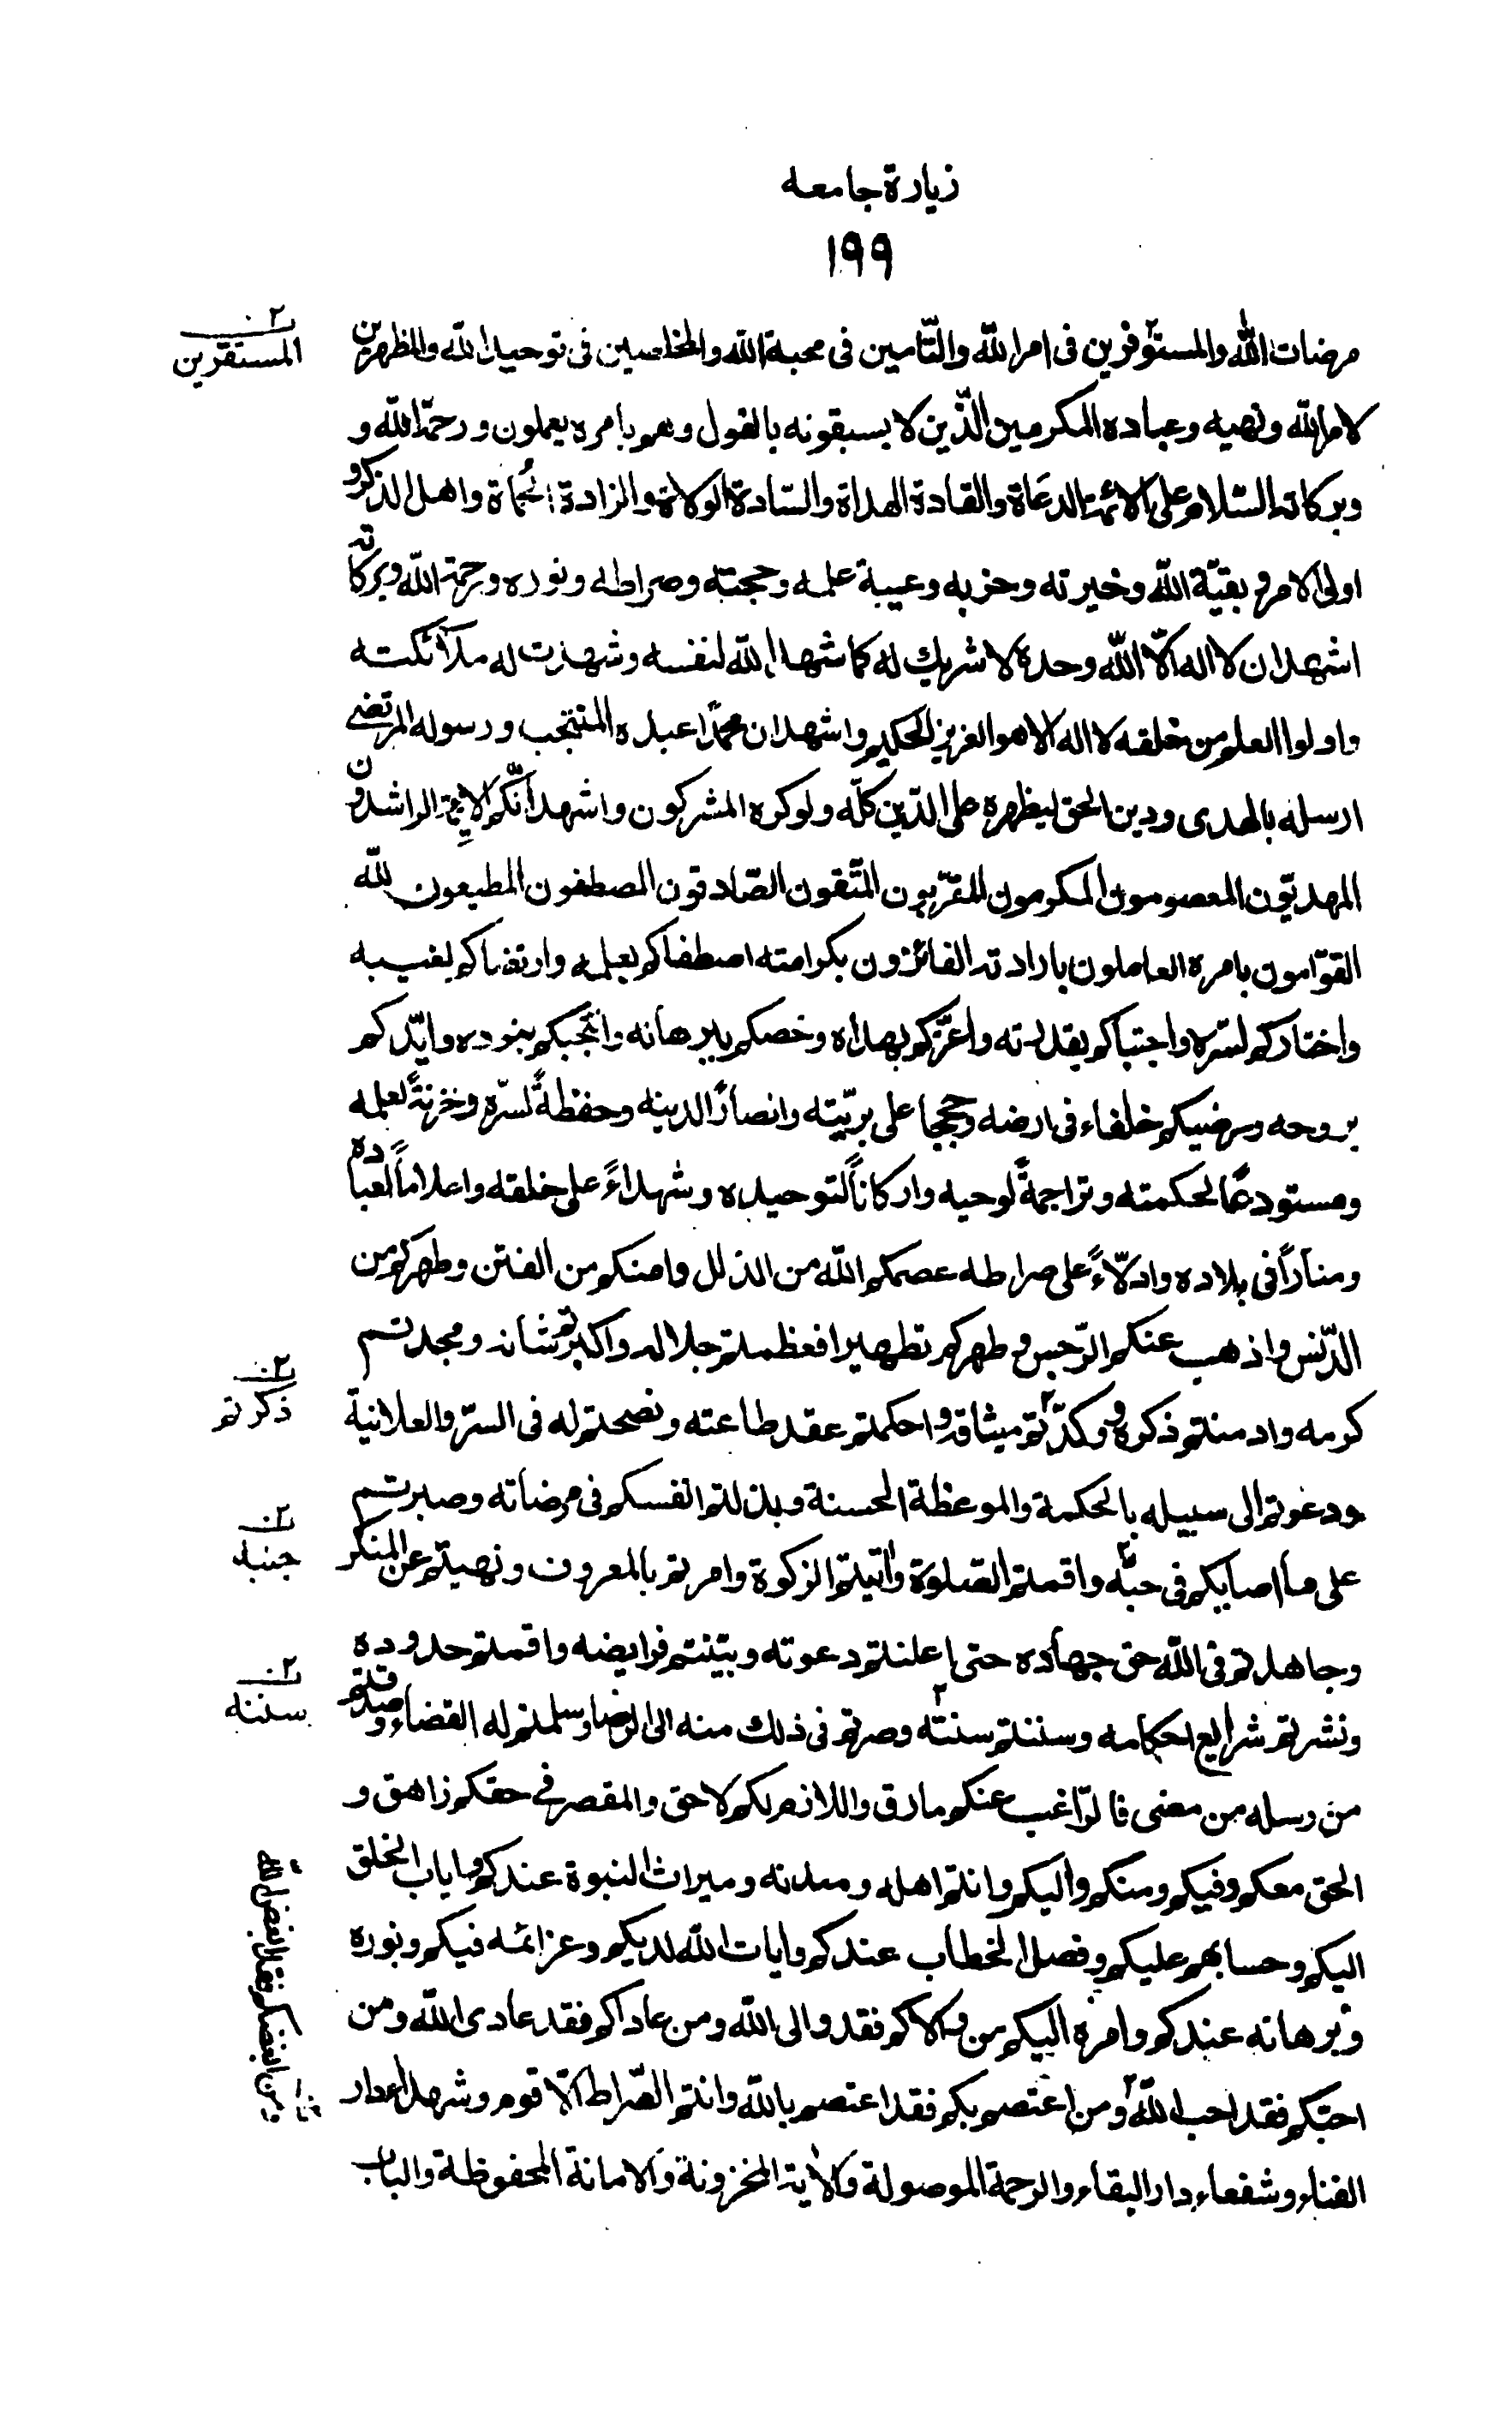 زيارة جامعه
١٩٩
مرضات الله والمستوفرين فى امر الله والتّامين فى محبة الله والمخلصين فى توحيد الله والمظهرين
المستقرين
لامر الله ونهيه وعباده المكرمين الّذين لا يسبقونه بالقول وهم بامره يعملون ورحمة الله و
وبركاته السّلام على الائمة الدعاة والقادة الهداة والسّادة الولاة والزادة الحماة واهل الذكر و
اولى الامر و بقيّة الله وخيرته وحزبه وعيبة علمه وحجته وصراطه ونوره ورحمة الله وبركاته
اشهد ان لا اله الّا الله وحده لا شريك له كما شهد الله لنفسه وشهدت له ملآئكته
واولوا العلم من خلقه لا اله الا هو العزيز الحكيم واشهد ان محمّداً عبده المنتجب ورسوله المرتضى
ارسله بالهدى ودين الحق ليظهره على الدّين كلّه ولو كره المشركون واشهد انّكم الائمة الراشدون
المهديّون المعصومون المكرمون المقرّبون المتّقون الصّادقون المصطفون المطيعون لله
القوّامون بامره العاملون بارادته الفائزون بكرامته اصطفاكم بعلمه وارتضاكم لغيبه
واختاركم لسّره واجتباكم بقدرته واعزّكم بهداه وخصكم ببرهانه وانتجبكم بنوره وايّدكم
بروحه ورضيكم خلفاء فى ارضه وحججا على بريّته وانصارًا لدينه وحفظةً لسرّه وخزنةً لعلمه
ومستودعًا لحكمته وتراجمةً لوحيه واركاناً لتوحيده وشهداءً على خلقه واعلاماً لعباده
ومناراً فى بلاده وادلّاءً على صراطه عصمكم الله من الذلل وامنكم من الفتن وطهركم من
الدّنس واذهب عنكم الرّجس و طهركم تطهيرا فعظمتم جلاله واكبرتم شانه ومجدتم
كرمه وادمنتم ذكره ووكدّتم ميثاقه واحكمتم عقد طاعته ونصحتم له فى السرّ والعلانية
ذكرتم
ودعوتم الى سبيله بالحكمة والموعظة الحسنة وبذلتم انفسكم فى مرضاته وصبرتم
على ما اصابكم فى حبّه واقمتم الصّلوة واتيتم الزكوة وامرتم بالمعروف ونهيتم عن المنكر
جنبه
وجاهدتم فى الله حق جهاده حتى اعلنتم دعوته وبيّنتم فرايضه واقمتم حدوده
ونشرتم شرايع احكامه وسننتم سنتّه وصرتم فى ذلك منه الى الرضا وسلمتم له القضاء وصدقتم
سننه
من رسله من مضى فالرّاغب عنكم مارق واللازم لكم لاحق والمقصر فى حقكم زاهق و
الحق معكم وفيكم ومنكم واليكم وانتم اهله ومعدنه وميراث النبوة عندكم واياب الخلق
اليكم وحسابهم عليكم وفصل الخطاب عندكم وايات الله لديكم وعزائمه فيكم ونوره
وبرهانه عندكم وامره اليكم من والاكم فقد والى الله ومن عاداكم فقد عادى الله ومن
احبّكم فقد احب الله ومن اعتصم بكم فقد اعتصم بالله وانتم الصّراط الاقوم وشهداء دار
ومن ابغضكم فقد ابغض الله
الفناء وشفعاء دار البقاء والرحمة الموصولة والاية المخزونة والامانة المحفوظة والباب